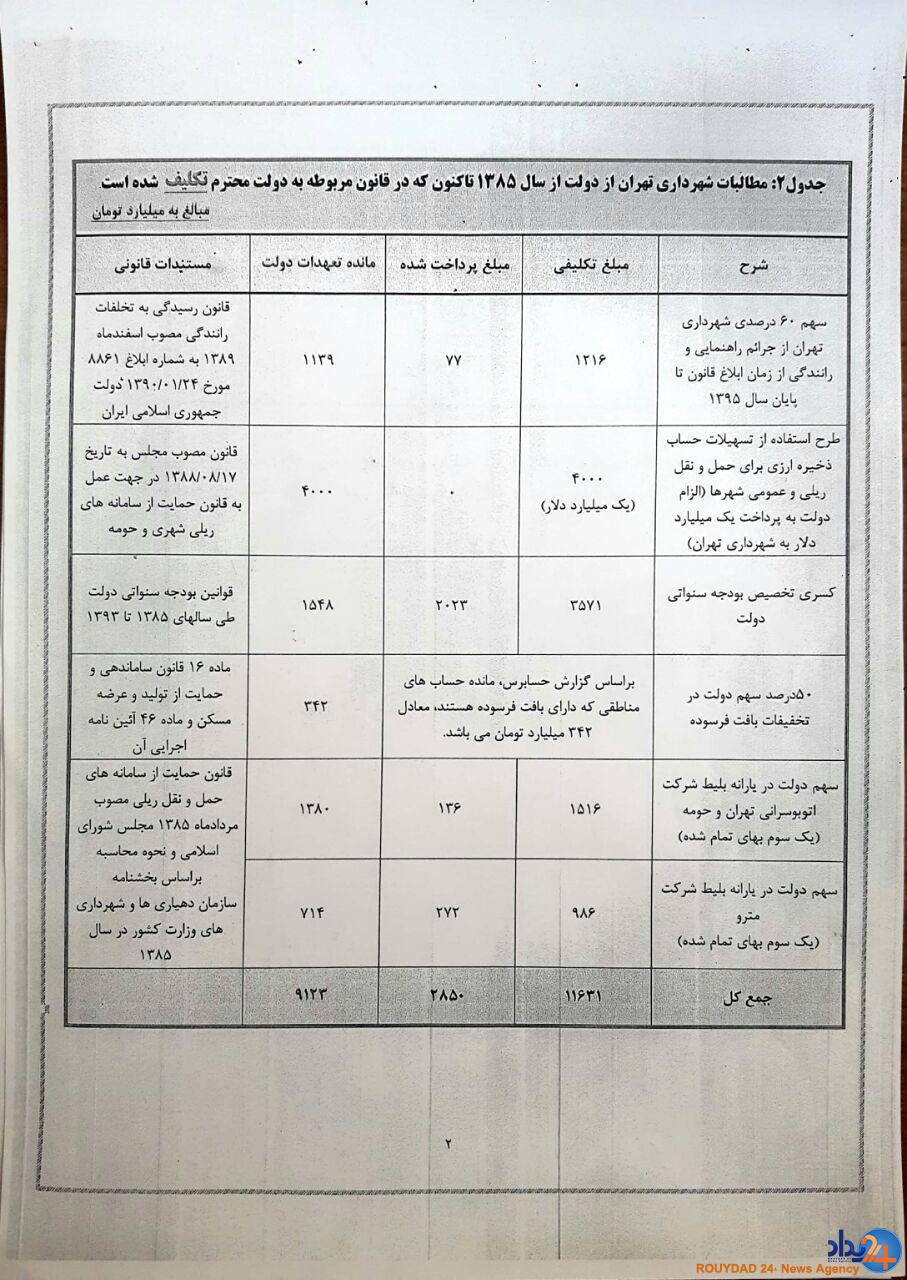 جدول۲: مطالبات شهرداری تهران از دولت از سال ۱۳۸۵ تاکنون که در قانون مربوطه به دولت محترم تکلیف شده است
مبالغ به میلیارد تومان
شرح
مبلغ تکلیفی
مبلغ پرداخت شده
مانده تعهدات دولت
مستندات قانونی
سهم ۶۰ درصدی شهرداری
تهران از جرائم راهنمایی و
رانندگی از زمان ابلاغ قانون تا
پایان سال ۱۳۹۵
۱۲۱۶
۷۷
۱۱۳۹
قانون رسیدگی به تخلفات
رانندگی مصوب اسفندماه
۱۳۸۹ به شماره ابلاغ ۸۸۶۱
مورخ ۱۳۹۰/۰۱/۲۴ دولت
جمهوری اسلامی ایران
طرح استفاده از تسهیلات حساب
ذخیره ارزی برای حمل و نقل
ریلی و عمومی شهرها (الزام
دولت به پرداخت یک میلیارد
دلار به شهرداری تهران)
۴۰۰۰
(یک میلیارد دلار)
۰
۴۰۰۰
قانون مصوب مجلس به تاریخ
۱۳۸۸/۰۸/۱۷ در جهت عمل
به قانون حمایت از سامانه های
ریلی شهری و حومه
کسری تخصیص بودجه سنواتی
دولت
۳۵۷۱
۲۰۲۳
۱۵۴۸
قوانین بودجه سنواتی دولت
طی سالهای ۱۳۸۵ تا ۱۳۹۳
۵۰درصد سهم دولت در
تخفیفات بافت فرسوده
براساس گزارش حسابرس، مانده حساب های
مناطقی که دارای بافت فرسوده هستند، معادل
۳۴۲ میلیارد تومان می باشد.
۳۴۲
ماده ۱۶ قانون ساماندهی و
حمایت از تولید و عرضه
مسکن و ماده ۴۶ آئین نامه
اجرایی آن
سهم دولت در یارانه بلیط شرکت
اتوبوسرانی تهران و حومه
(یک سوم بهای تمام شده)
۱۵۱۶
۱۳۶
۱۳۸۰
قانون حمایت از سامانه های
حمل و نقل ریلی مصوب
مردادماه ۱۳۸۵ مجلس شورای
اسلامی و نحوه محاسبه
براساس بخشنامه
سازمان دهیاری ها و شهرداری
های وزارت کشور در سال
۱۳۸۵
سهم دولت در یارانه بلیط شرکت
مترو
(یک سوم بهای تمام شده)
۹۸۶
۲۷۲
۷۱۴
جمع کل
۱۱۶۳۱
۲۸۵۰
۹۱۲۳
۲
رویداد 24
ROUYDAD 24- News Agency